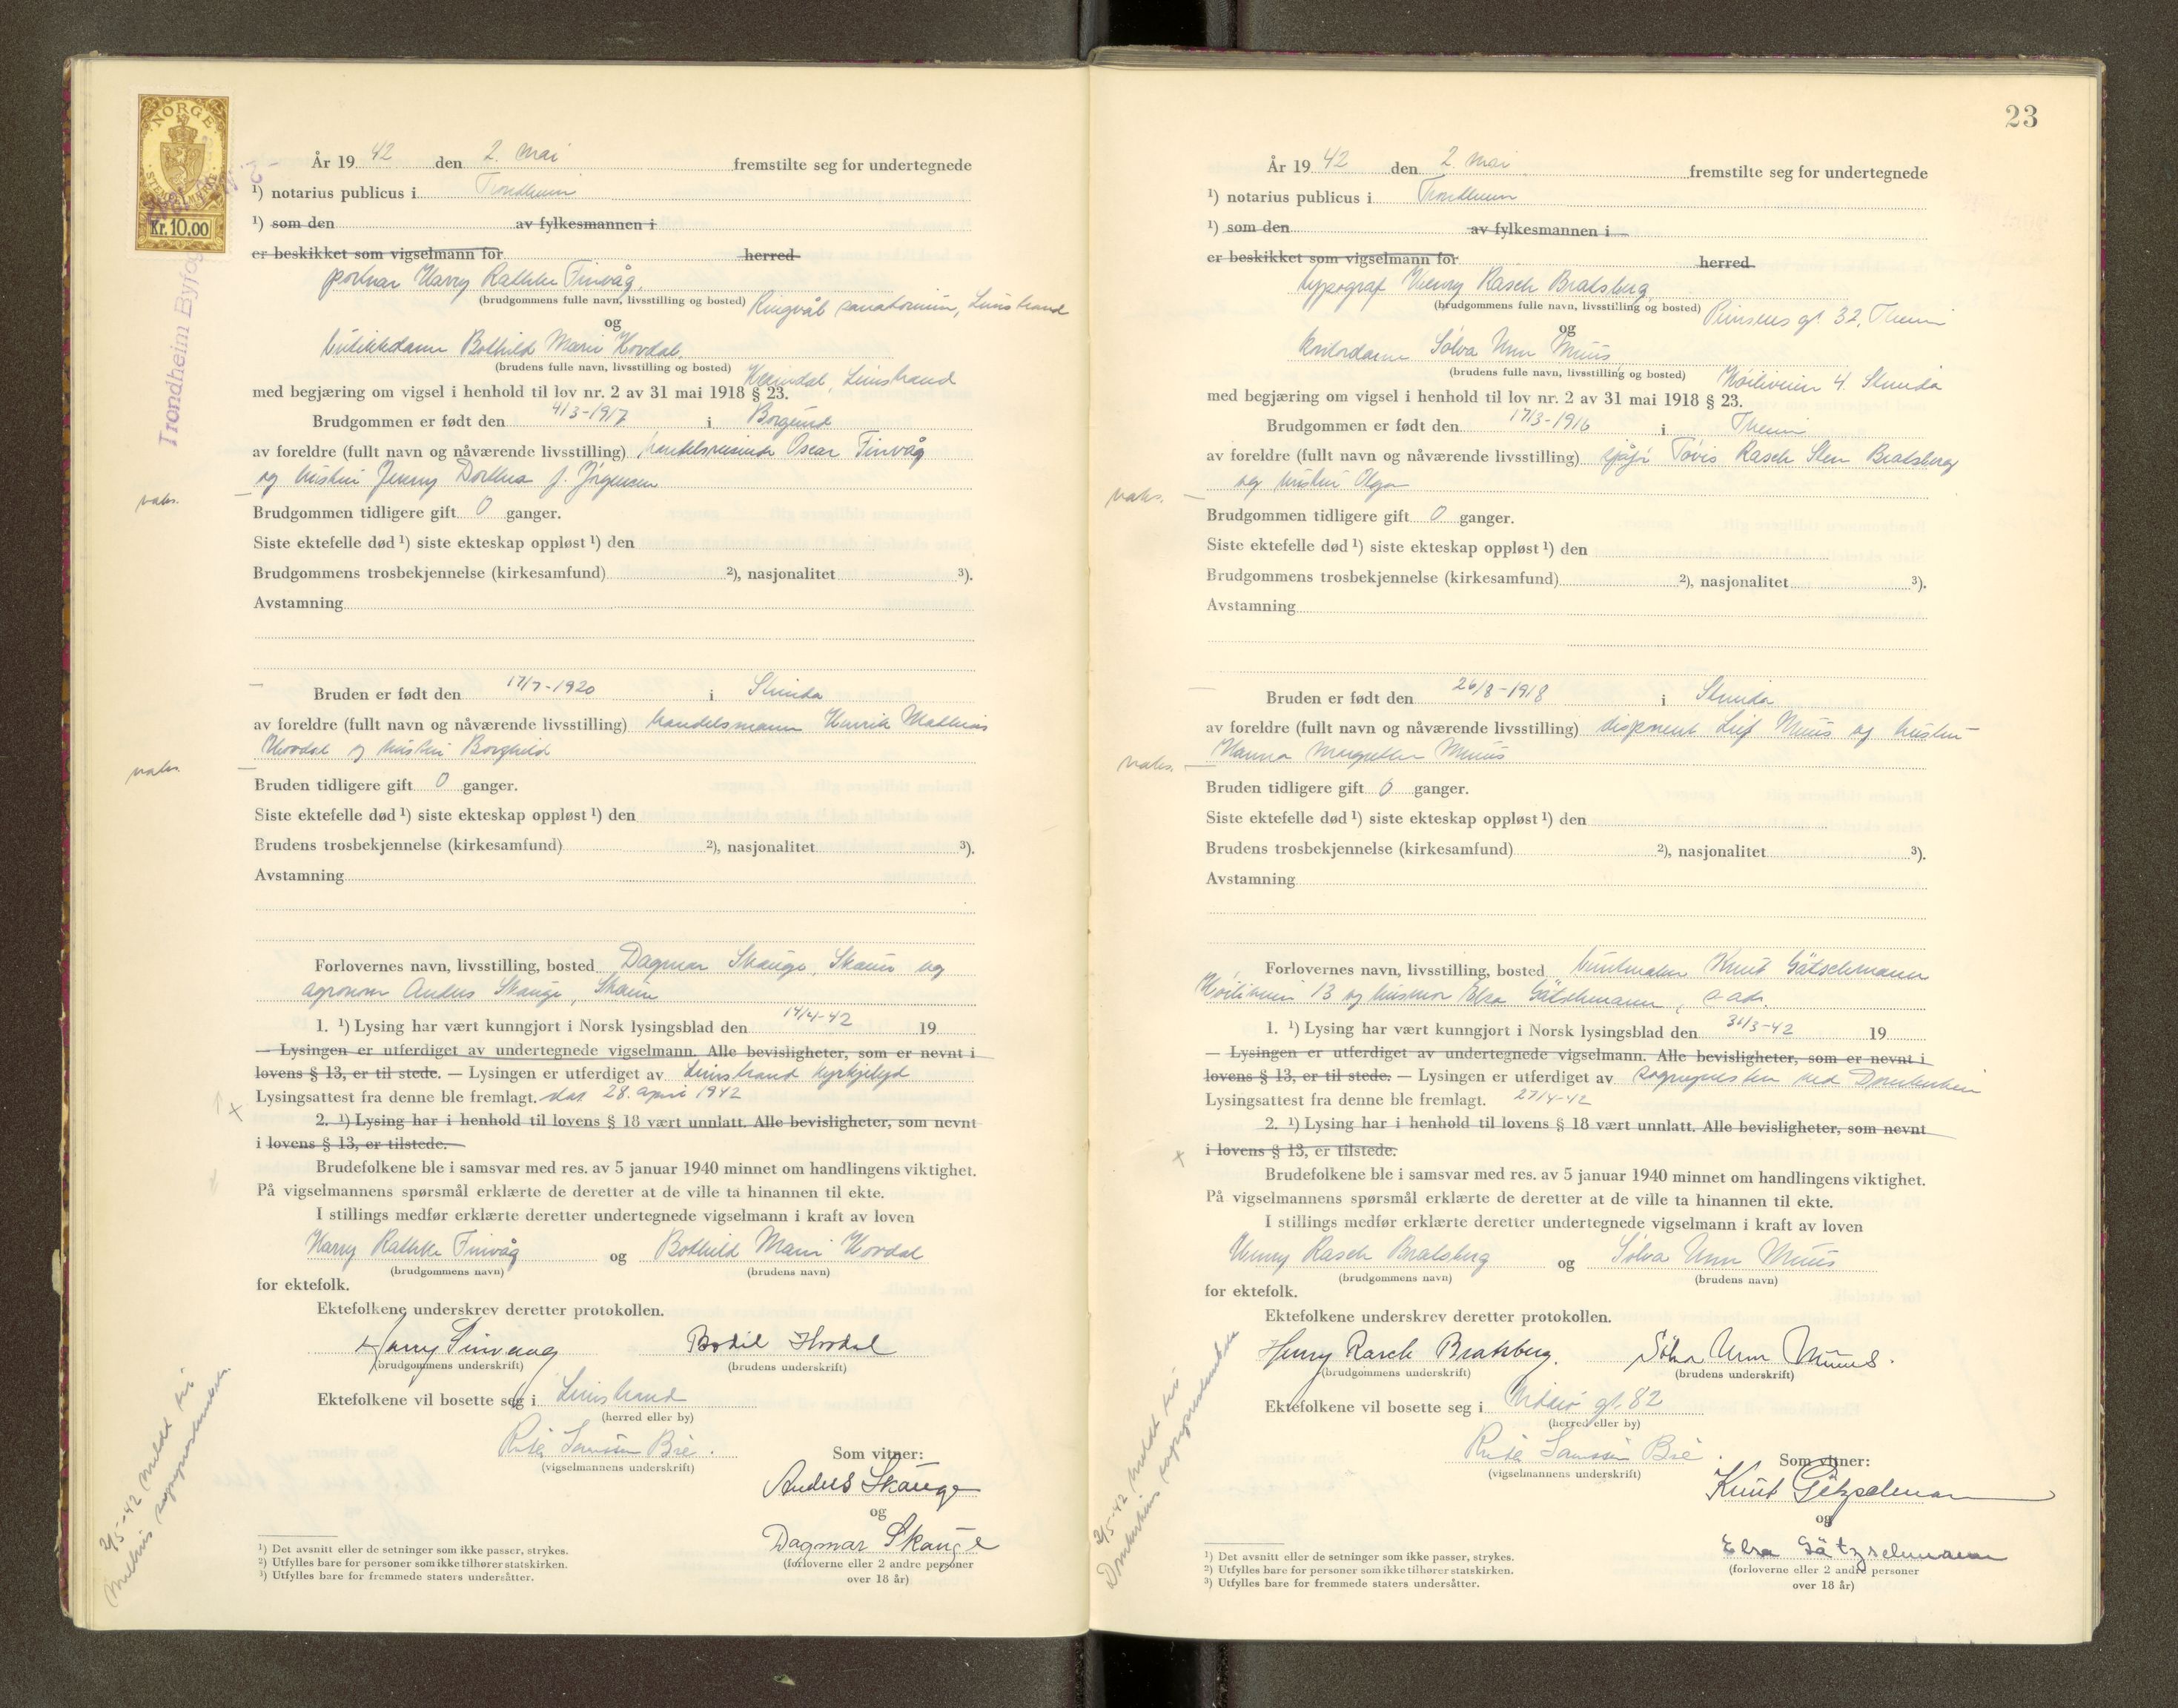 NORGE
Kr. 10.00
Trondheim Byfog
År 1942 den 2. mai fremstilte seg for undertegnede
¹) notarius publicus i Trondheim
¹) som den av fylkesmannen i
er beskikket som vigselmann for herred
portner Harry Rathke Finvåg,
(brudgommens fulle navn, livsstilling og bosted) Ringvål sanatorium, Leinstrand
og
butikkdame Bothild Marie Hovdal,
(brudens fulle navn, livsstilling og bosted) Leinstrand
med begjæring om vigsel i henhold til lov nr. 2 av 31 mai 1918 § 23.
Brudgommen er født den 4/3-1917 i Borgund
av foreldre (fullt navn og nåværende livsstilling) handelsreisende Oscar Finvåg
og hustru Jenny Dorthea f. Jörgensen
vaks.
Brudgommen tidligere gift 0 ganger.
Siste ektefelle død ¹) siste ekteskap oppløst ¹) den
Brudgommens trosbekjennelse (kirkesamfund) ²), nasjonalitet ³).
Avstamning
Bruden er født den 17/7-1920 i Strinda
av foreldre (fullt navn og nåværende livsstilling) handelsmann Henrik Mathias
Hovdal og hustru Borghild
vaks.
Bruden tidligere gift 0 ganger.
Siste ektefelle død ¹) siste ekteskap oppløst ¹) den
Brudens trosbekjennelse (kirkesamfund) ²), nasjonalitet ³).
Avstamning
Forlovernes navn, livsstilling, bosted Dagmar Skauge, Skaun og
agronom Anders Skauge, Skaun
1. ¹) Lysing har vært kunngjort i Norsk lysingsblad den 14/4-42 19
— Lysingen er utferdiget av undertegnede vigselmann. Alle bevisligheter, som er nevnt i
lovens § 13, er til stede. — Lysingen er utferdiget av Leinstrand kyrkjelyd
Lysingsattest fra denne ble fremlagt. dat 28. april 1942
2. ¹) Lysing har i henhold til lovens § 18 vært unnlatt. Alle bevisligheter, som nevnt
i lovens § 13, er tilstede.
Brudefolkene ble i samsvar med res. av 5 januar 1940 minnet om handlingens viktighet.
På vigselmannens spørsmål erklærte de deretter at de ville ta hinannen til ekte.
I stillings medfør erklærte deretter undertegnede vigselmann i kraft av loven
Harry Rathke Finvåg og Bothild Marie Hovdal
(brudgommens navn) (brudens navn)
for ektefolk.
Ektefolkene underskrev deretter protokollen.
Harry Finvaag Bodil Hovdal
(brudgommens underskrift) (brudens underskrift)
Ektefolkene vil bosette seg i Leinstrand
(herred eller by)
(vigselmannens underskrift)
Som vitner:
Anders Skauge
og
Dagmar Skauge
(forloverne eller 2 andre personer
over 18 år)
2/5-42 meldt til
Melhus sogneprestembete.
¹) Det avsnitt eller de setninger som ikke passer, strykes.
²) Utfylles bare for personer som ikke tilhører statskirken.
³) Utfylles bare for fremmede staters undersåtter.
23
År 1942 den 2. mai fremstilte seg for undertegnede
¹) notarius publicus i Trondheim
¹) som den av fylkesmannen i
er beskikket som vigselmann for herred
typograf Henry Rasch Bratsberg
(brudgommens fulle navn, livsstilling og bosted) Prinsens gt. 32, Theim
og
kontordame Sölva Unn Muus
(brudens fulle navn, livsstilling og bosted) 4. Strinda
med begjæring om vigsel i henhold til lov nr. 2 av 31 mai 1918 § 23.
Brudgommen er født den 17/3-1916 i Theim
av foreldre (fullt navn og nåværende livsstilling) sjåfør Rasch Sten Bratsberg
og hustru Olga
vaks.
Brudgommen tidligere gift 0 ganger.
Siste ektefelle død ¹) siste ekteskap oppløst ¹) den
Brudgommens trosbekjennelse (kirkesamfund) ²), nasjonalitet ³).
Avstamning
Bruden er født den 26/8-1918 i Strinda
av foreldre (fullt navn og nåværende livsstilling) disponent Leif Muus og hustru
Hanna Margrethe Muus
vaks.
Bruden tidligere gift 0 ganger.
Siste ektefelle død ¹) siste ekteskap oppløst ¹) den
Brudens trosbekjennelse (kirkesamfund) ²), nasjonalitet ³).
Avstamning
Forlovernes navn, livsstilling, bosted Knut Gätschmann
13 og husmor Elsa Gätschmann, s. adr.
1. ¹) Lysing har vært kunngjort i Norsk lysingsblad den 31/3-42 19
— Lysingen er utferdiget av undertegnede vigselmann. Alle bevisligheter, som er nevnt i
lovens § 13, er til stede. — Lysingen er utferdiget av sognepresten ved Domkirken
Lysingsattest fra denne ble fremlagt. 27/4-42
2. ¹) Lysing har i henhold til lovens § 18 vært unnlatt. Alle bevisligheter, som nevnt
i lovens § 13, er tilstede.
Brudefolkene ble i samsvar med res. av 5 januar 1940 minnet om handlingens viktighet.
På vigselmannens spørsmål erklærte de deretter at de ville ta hinannen til ekte.
I stillings medfør erklærte deretter undertegnede vigselmann i kraft av loven
Henry Rasch Bratsberg og Sölva Unn Muus
(brudgommens navn) (brudens navn)
for ektefolk.
Ektefolkene underskrev deretter protokollen.
Henry Rasch Bratsberg. Sölva Unn Muus.
(brudgommens underskrift) (brudens underskrift)
Ektefolkene vil bosette seg i gt. 82
(herred eller by)
(vigselmannens underskrift)
Som vitner:
Knut Götzschmann
og
Elsa Gätzschmann
(forloverne eller 2 andre personer
over 18 år)
2/5-42 meldt til
Domkirkens sogneprestembete
¹) Det avsnitt eller de setninger som ikke passer, strykes.
²) Utfylles bare for personer som ikke tilhører statskirken.
³) Utfylles bare for fremmede staters undersåtter.